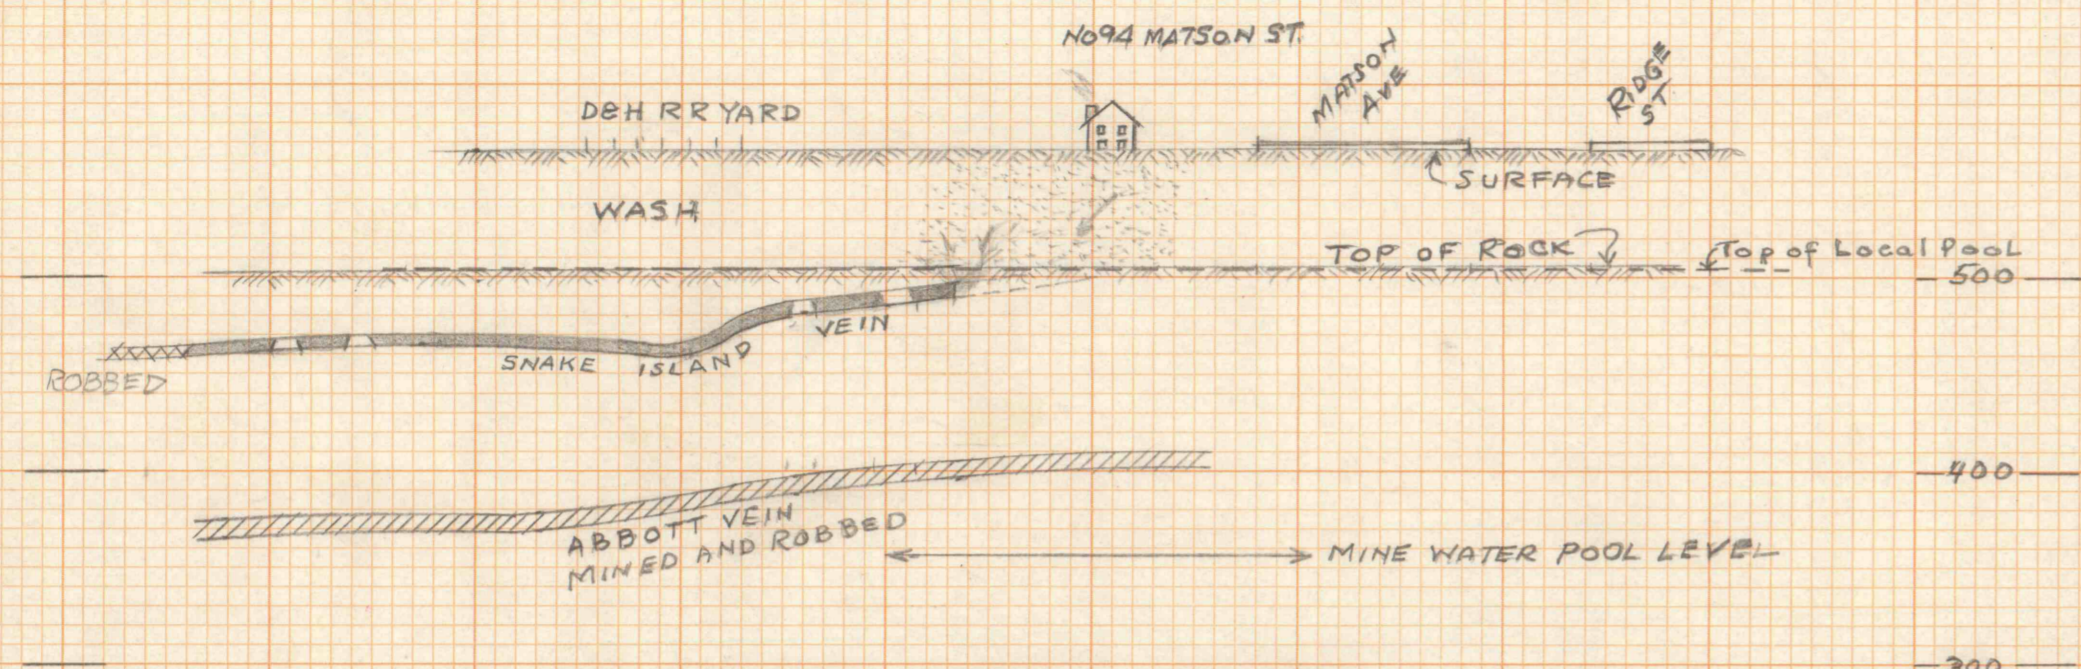 NO94 MATSON ST.
MATSON
AVE
RIDGE
ST
D&H RR YARD
SURFACE
WASH
TOP OF ROCK
Top of Local Pool
500
VEIN
SNAKE ISLAND
ROBBED
400
ABBOTT VEIN
MINED AND ROBBED
MINE WATER POOL LEVEL
300